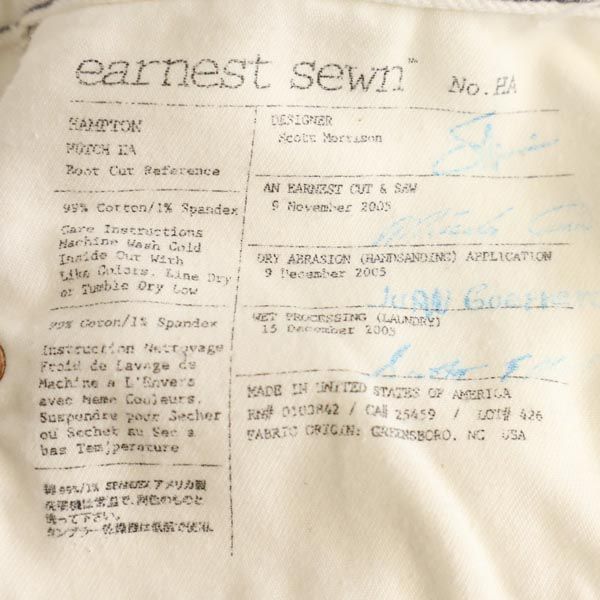 earnest sewn™
No. HA
HAMPTON
HUTCH HA
Boot Cut Reference
99% Cotton/1% Spandex
Care Instructions
Machine Wash Cold
Inside Out With
Like Colors. Line Dry
or Tumble Dry Low
99% Coton/1% Spandex
Instruction Nettoyage
Froid de Lavage de
Machine a L'Envers
avec Meme Couleurs.
Suspendre pour Secher
ou Sechet au Sec a
bas Temperature
綿 99%/1% SPANDEX アメリカ製
洗濯機は常温で、同色のものと
洗って下さい。
タンブラー乾燥機は低温で使用。
DESIGNER
Scott Morrison
AN EARNEST CUT & SEW
9 November 2005
DRY ABRASION (HANDSANDING) APPLICATION
9 December 2005
Juan Guerrero
WET PROCESSING (LAUNDRY)
15 December 2005
MADE IN UNITED STATES OF AMERICA
RN# 0103842 / CA# 25459 / LOT# 426
FABRIC ORIGIN: GREENSBORO, NC USA